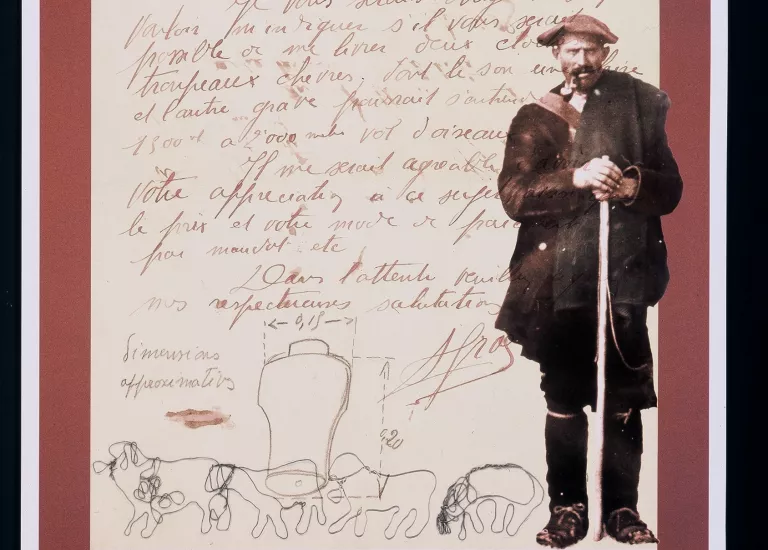 Je vous serais
vouloir m'indiquer s'il vous serait
possible de me livrer deux
troupeaux chèvres, dont le son
et l'autre grave pourrait s'entendre
1500 à 2000 vol d'oiseaux
Il me serait agréable
Votre appréciation à ce sujet
le prix et votre mode de
par mandat etc
Dans l'attente
mes respectueuses salutations
← 0,15 →
Dimensions
approximatives
0,20